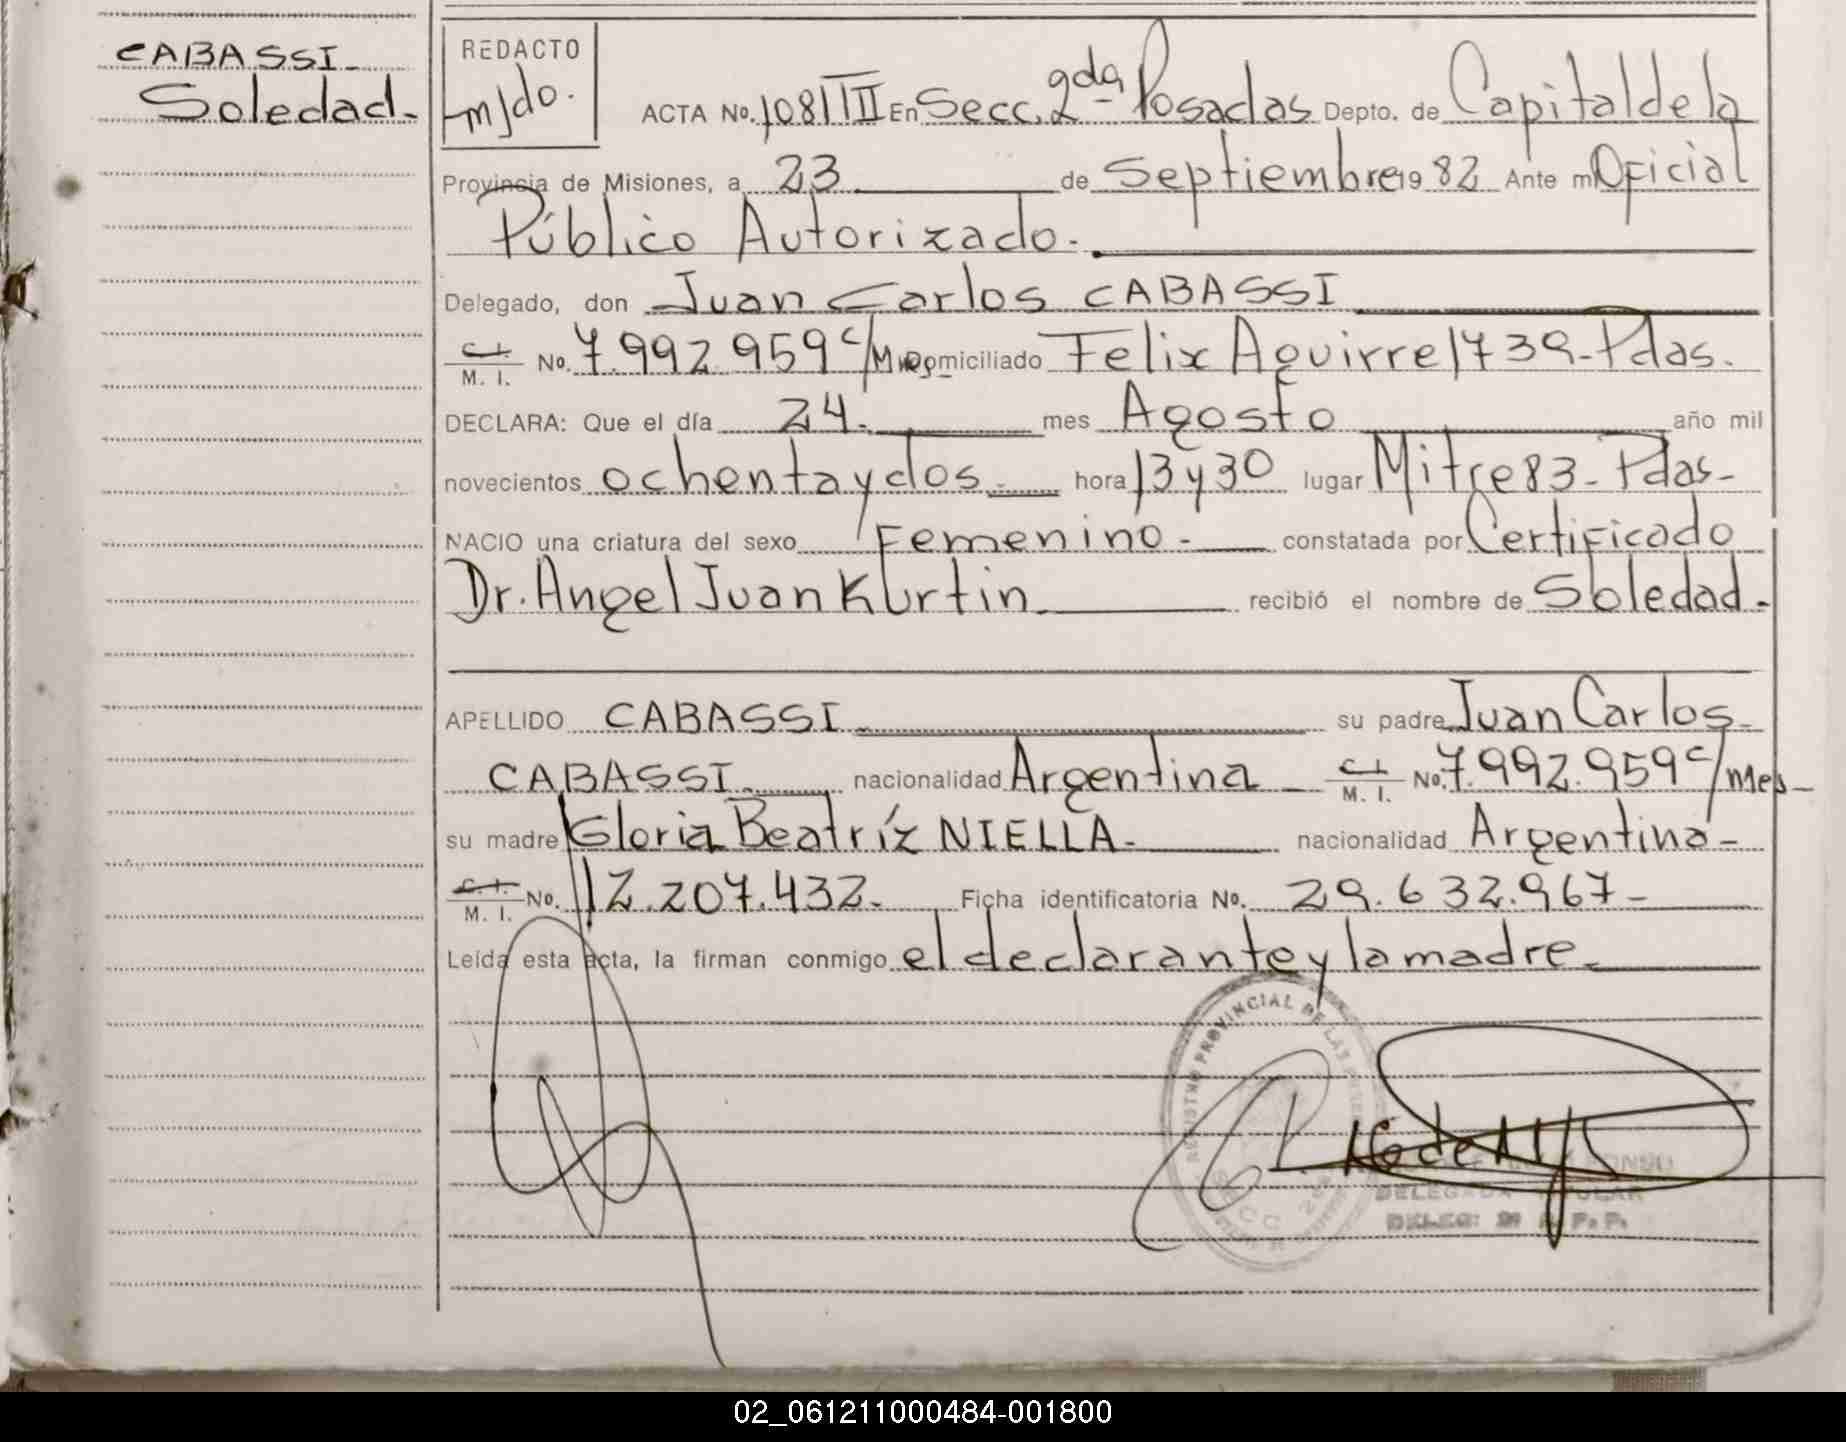 CABASSI
Soledad.
REDACTO
m/do.
ACTA No. 1081 TII En Secc. 2da Posadas Depto. de Capital de la
Provincia de Misiones, a 23 de Septiembre 1982 Ante mí Oficial
Público Autorizado.
Delegado, don Juan Carlos CABASSI
C. I. M. I. No. 7.992.959 c/Mes. Domiciliado Felix Aguirre 1739 - Pdas.
DECLARA: Que el día 24. mes Agosto año mil
novecientos ochenta y dos hora 13 y 30 lugar Mitre 83 - Pdas -
NACIO una criatura del sexo Femenino - constatada por Certificado
Dr. Angel Juan Kurtin recibió el nombre de Soledad -
APELLIDO CABASSI su padre Juan Carlos
CABASSI nacionalidad Argentina C. I. M. I. No. 7.992.959 c/mes -
su madre Gloria Beatríz NIELLA - nacionalidad Argentina -
C. I. M. I. No. 12.207.432. Ficha identificatoria No. 29.632.967 -
Leída esta acta, la firman conmigo el declarante y la madre.
REGISTRO PROVINCIAL DE LAS
SECC 2da
DELEGADA TITULAR
02_061211000484-001800